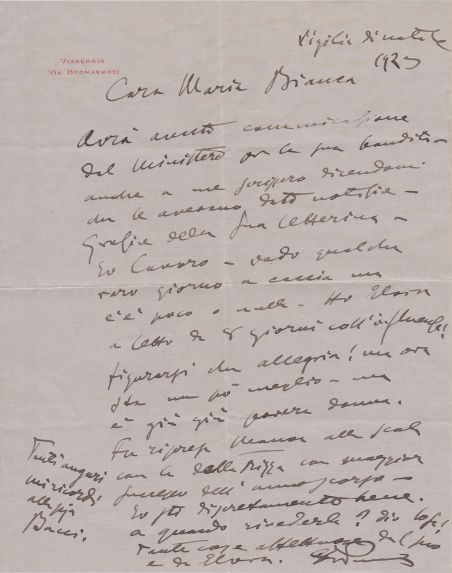 VIAREGGIO
VIA BUONARROTI
Vigilia di natale
1923
Cara Maria Bianca
Avrà avuto comunicazione
dal Ministero per la sua
anche a me scrissero dicendomi
che le avevano dato notizia –
Grazie della sua letterina –
Io lavoro – vado qualche
raro giorno a caccia ma
c'è poco o nulla – Ho Elvira
a letto da 8 giorni coll'influenza!
figurarsi che allegria! ma ora
sta un pò meglio – ma
è giù giù povera donna.
Fu ripresa Manon alla Scala
con la dalla Rizza con maggior
successo dell'anno scorso –
Io sto discretamente bene.
a quando rivederla?
Tante cose affettuose dal suo
e da Elvira.
Tanti auguri
mi ricordi
alla
Bacci.